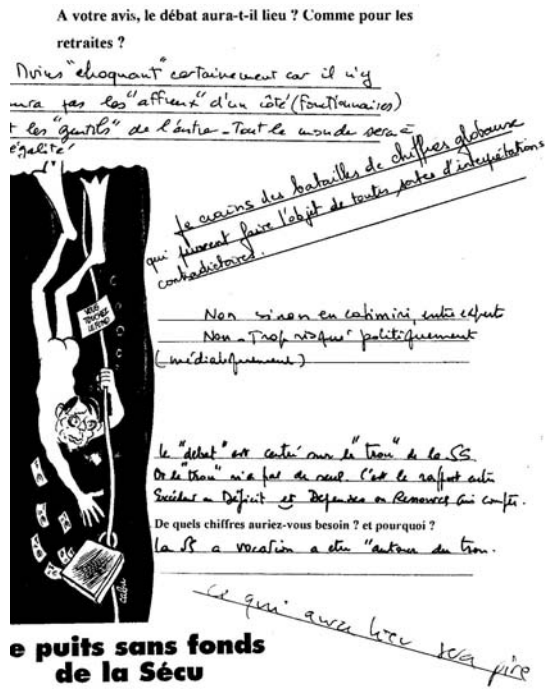 A votre avis, le débat aura-t-il lieu ? Comme pour les
retraites ?
Moins "choquant" certainement car il n'y
aura pas les "affreux" d'un côté (fonctionnaires)
t les "gentils" de l'autre - Tout le monde sera à
égalité
Je crains des batailles de chiffres globaux
qui peuvent faire l'objet de toutes sortes d'interprétations
contradictoires.
VOUS
TOUCHEZ
LE FOND
Non sinon en catimini, entre experts
Non - Trop risqué politiquement
(médiatiquement)
le "débat" est centré sur le "trou" de la SS
Or le "trou" n'a pas de sens. C'est le rapport entre
Excédent ou Déficit et Dépenses ou Ressources qui compte.
De quels chiffres auriez-vous besoin ? et pourquoi ?
la SS a vocation a etre "autour du trou.
cabu
Ce qui aura lieu sera pire
e puits sans fonds
de la Sécu